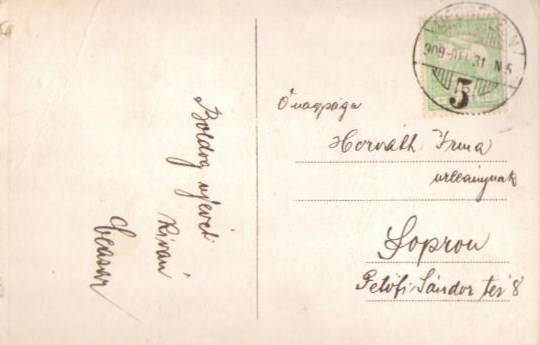 Boldog ujévét
kiván
Önagysága
Horváth Irma
urleánynak
Sopron
Petőfi Sándor tér 8
909
31
5